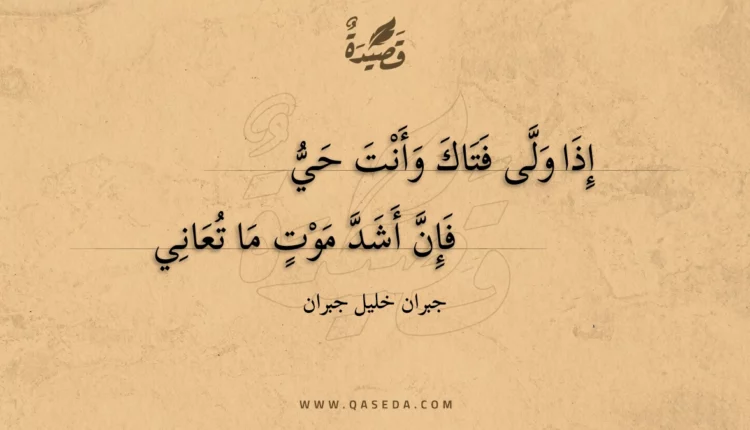 قَصِيدَةٌ
إِذَا وَلَّى فَتَاكَ وَأَنْتَ حَيُّ
فَإِنَّ أَشَدَّ مَوْتٍ مَا تُعَانِي
جبران خليل جبران
WWW.QASEDA.COM